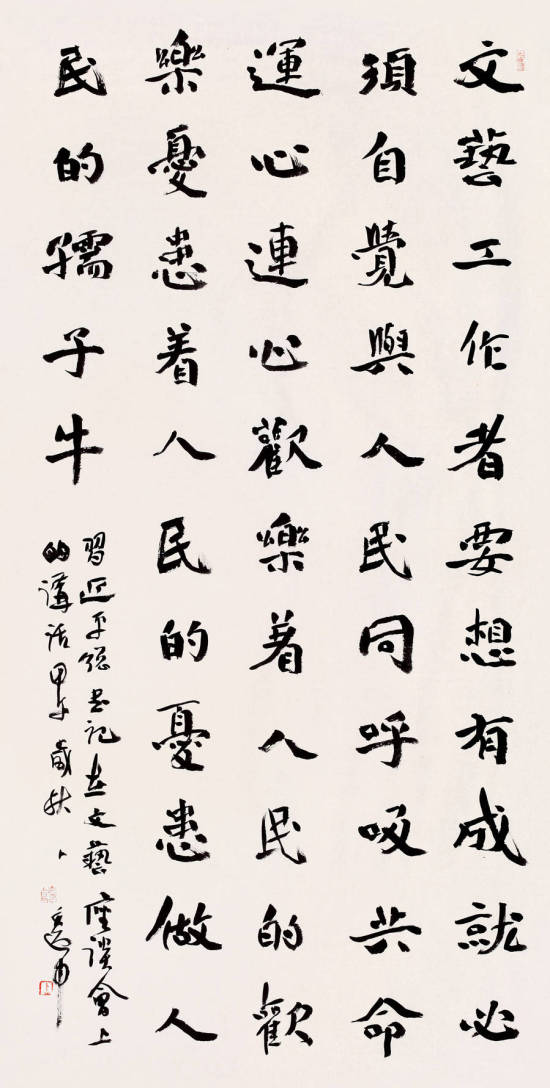 文藝工作者要想有成就必
須自覺與人民同呼吸共命
運心連心歡樂着人民的歡
樂憂患着人民的憂患做人
民的孺子牛
習近平總書記在文藝座談會上
的講話甲午歲秋